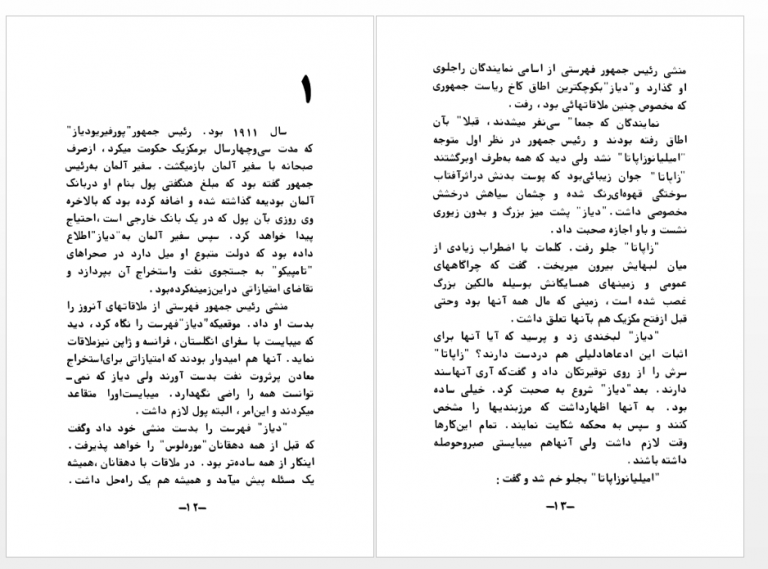 ۱
سال ۱۹۱۱ بود. رئیس جمهور"پورفیریودیاز"
که مدت سی‌وچهارسال برمکزیک حکومت میکرد، ازصرف
صبحانه با سفیر آلمان بازمیگشت. سفیر آلمان به‌رئیس
جمهور گفته بود که مبلغ هنگفتی پول بنام او دربانک
آلمان بودیعه گذاشته شده و اضافه کرده بود که بالاخره
وی روزی بآن پول که در یک بانک خارجی است،احتیاج
پیدا خواهد کرد. سپس سفیر آلمان به"دیاز"اطلاع
داده بود که دولت متبوع او میل دارد در صحراهای
"تامپیکو" به جستجوی نفت واستخراج آن بپردازد و
تقاضای امتیازاتی دراین‌زمینه‌کرده‌بود.
منشی رئیس جمهور فهرستی از ملاقاتهای آنروز را
بدست او داد. موقعیکه"دیاز"فهرست را نگاه کرد، دید
که میبایست با سفرای انگلستان، فرانسه و ژاپن نیزملاقات
نماید. آنها هم امیدوار بودند که امتیازاتی برای‌استخراج
معادن پرثروت نفت بدست آورند ولی دیاز که نمی‌ـ
توانست همه را راضی نگهدارد. میبایست‌اورا متقاعد
میکردند و این‌امر، البته پول لازم داشت.
"دیاز" فهرست را بدست منشی خود داد وگفت
که قبل از همه دهقانان"موره‌لوس" را خواهد پذیرفت.
اینکار از همه ساده‌تر بود. در ملاقات با دهقانان،همیشه
یک مسئله پیش میآمد و همیشه هم یک راه‌حل داشت.
—۱۲—
منشی رئیس جمهور فهرستی از اسامی نمایندگان راجلوی
او گذارد و"دیاز"بکوچکترین اطاق کاخ ریاست جمهوری
که مخصوص چنین ملاقاتهائی بود، رفت.
نمایندگان که جمعا" سی‌نفر میشدند، قبلا" بآن
اطاق رفته بودند و رئیس جمهور در نظر اول متوجه
"امیلیانوزاپاتا" نشد ولی دید که همه به‌طرف اوبرگشتند
"زاپاتا" جوان زیبائی‌بود که پوست بدنش دراثرآفتاب
سوختگی قهوه‌ای‌رنگ شده و چشمان سیاهش درخشش
مخصوصی داشت."دیاز" پشت میز بزرگ و بدون زیوری
نشست و باو اجازه صحبت داد.
"زاپاتا" جلو رفت. کلمات با اضطراب زیادی از
میان لبهایش بیرون میریخت. گفت که چراگاههای
عمومی و زمینهای همسایگانش بوسیله مالکین بزرگ
غصب شده است، زمینی که مال همه آنها بود وحتی
قبل ازفتح مکزیک هم بآنها تعلق داشت.
"دیاز" لبخندی زد و پرسید که آیا آنها برای
اثبات این ادعاهادلیلی هم دردست دارند؟ "زاپاتا"
سرش را از روی توقیرتکان داد و گفت‌که آری آنهاسند
دارند. بعد"دیاز" شروع به صحبت کرد. خیلی ساده
بود. به آنها اظهارداشت که مرزبندیها را مشخص
کنند و سپس به محکمه شکایت نمایند. تمام این‌کارها
وقت لازم داشت ولی آنهاهم میبایستی صبروحوصله
داشته باشند.
"امیلیانوزاپاتا" بجلو خم شد و گفت:
—۱۳—